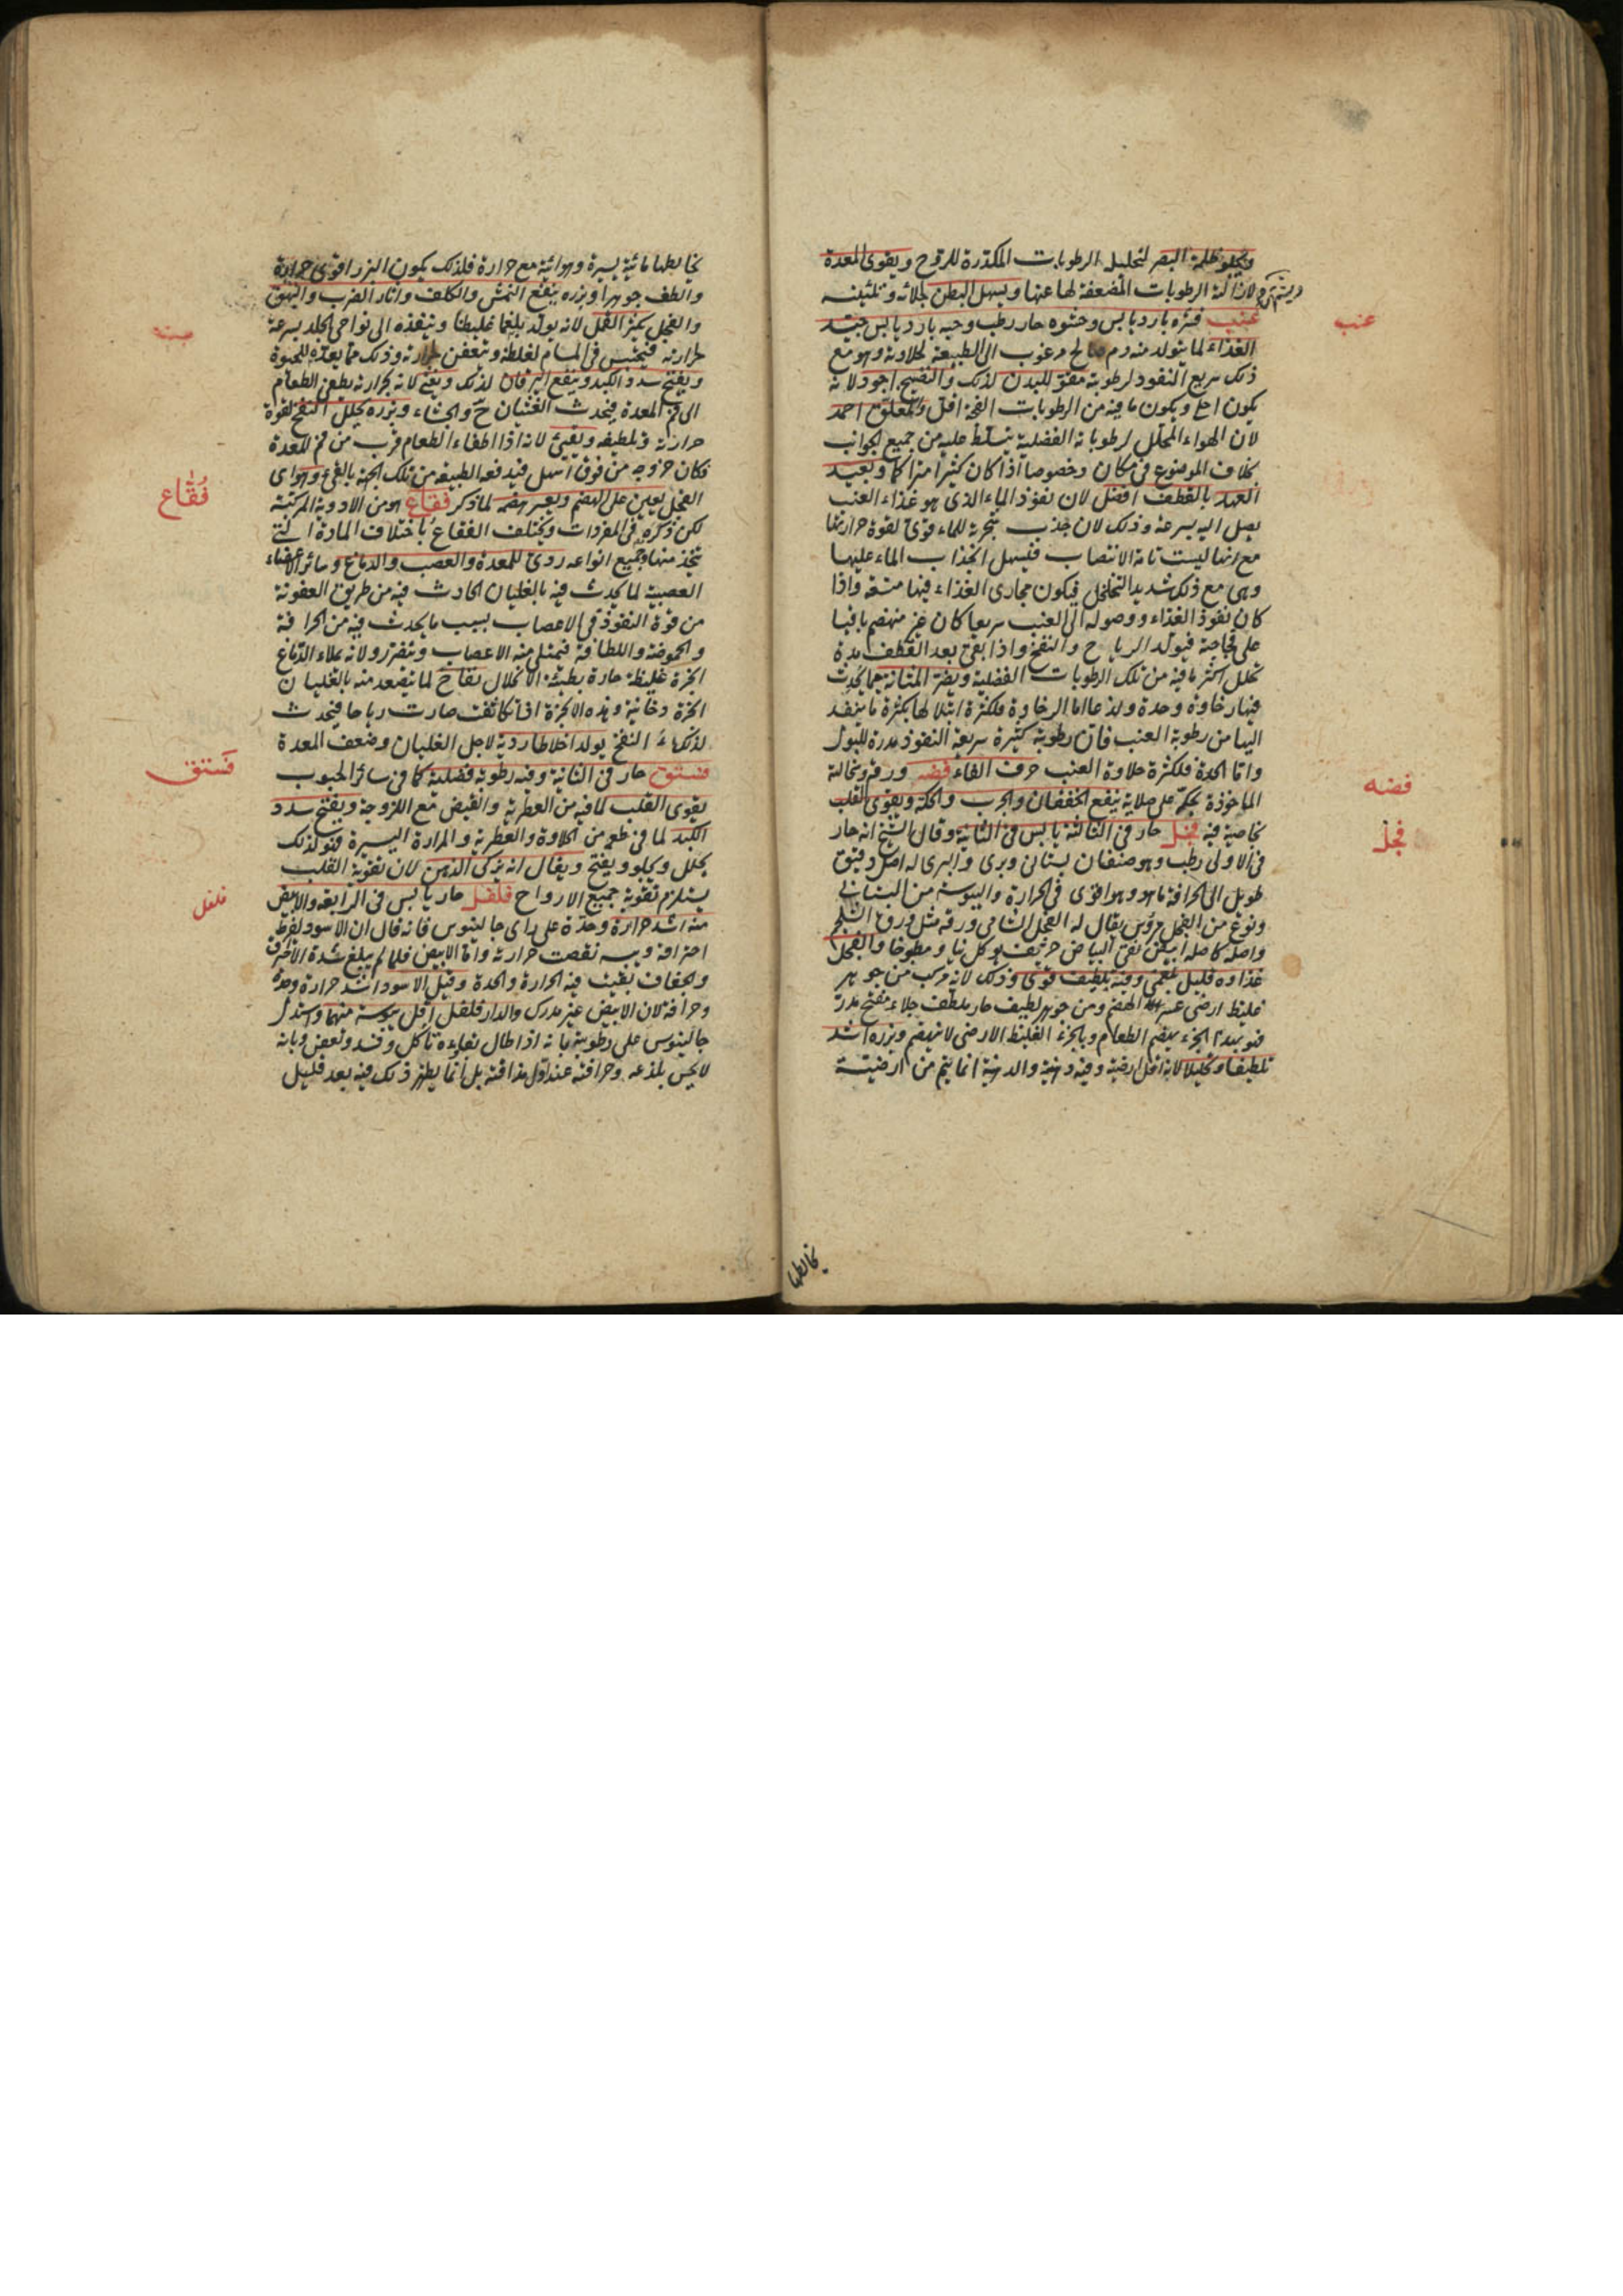 ويجلو ظلمة البصر لتحليل الرطوبات المكدرة للروح ويقوى المعدة
لازالة الرطوبات المضعفة لها عنها ويسهل البطن بجلائه وتليينه
عنب قشره بارد يابس وحشوه حار رطب وحبه بارد يابس جيد
الغذاء لما يتولد منه دم صالح مرغوب الى الطبيعة لحلاوته وهو مع
ذلك سريع النفوذ لرطوبته مقو للبدن لذلك والنضيج اجود لانه
يكون احلى ويكون ما فيه من الرطوبات الفجة اقل والمعلق احمد
لان الهواء المحلل لرطوباته الفضلية يتسلط عليه من جميع الجوانب
بخلاف الموضوع فى مكان وخصوصا اذا كان كثيرا متراكما وبعيد
العهد بالقطف افضل لان نفوذ الماء الذى هو غذاء العنب
يصل اليه بسرعة وذلك لان جذب شجرته للماء قوى لقوة حرارتها
مع انها ليست تامة الانتصاب فيسهل انجذاب الماء عليها
وهى مع ذلك شديد التخلخل فيكون مجارى الغذاء فيها متسعة واذا
كان نفوذ الغذاء ووصوله الى العنب سريعا كان غير منهضم باقيا
على فجاجته فيتولد الرياح والنفخ واذا بقى بعد القطف مدة
تحلل اكثر ما فيه من تلك الرطوبات الفضلية ويضر المثانة بما يحدث
فيها رخاوة وحدة ولذعا اما الرخاوة فلكثرة ابتلالها بكثرة ما ينفذ
اليها من رطوبة العنب فان رطوبته كثيرة سريعة النفوذ مدرة للبول
واما الحدة فلكثرة حلاوة العنب حرف الفاء فضه ورقه ونحالته
الماخوذة بحكه على صلاية ينفع الخفقان والجرب والحكة ويقوى القلب
بخاصية فيه فجل حار فى الثالثة يابس فى الثانية وقال الشيخ انه حار
فى الاولى رطب وهو صنفان بستانى وبرى والبرى له اصل دقيق
طويل الى الحرافة ما هو وهو اقوى فى الحرارة واليبوسة من البستانى
ونوع من الفجل مروس يقال له الفجل الشامى ورقه مثل ورق الشلجم
واصله كاصله ابيض نقى البياض حريف يوكل نيا ومطبوخا والفجل
غذاوه قليل بلغمى وفيه تلطيف قوى وذلك لانه مركب من جوهر
غليظ ارضى عسر الهضم ومن جوهر لطيف حار ملطف جلاء مفتح مدر
فهو بهذا الجزء يهضم الطعام وبالجزء الغليظ الارضى لا ينهضم وبزره اشد
تلطيفا وتحليلا لانه اقل ارضية وفيه دهنية والدهنية انما يتم من ارضيته
يخالطها
عنب
فضه
فجل
يخالطها مائية يسيرة وهوائية مع حرارة فلذلك يكون البزر اقوى حرارة
والطف جوهرا وبزره ينفع النمش والكلف واثار الضرب والبهق
والفجل يكثر القمل لانه يولد بلغما غليظا وينفذه الى نواحى الجلد بسرعة
حرارته فيحتبس فى المسام لغلظه ويتعفن لحرارته وذلك مما يعده للحيوة
ويفتح سدد الكبد وينفع اليرقان لذلك ويغثى لانه بحرارته يطفى الطعام
الى فم المعدة فيحدث الغثيان ح والجشاء وبزره يحلل النفخ لقوة
حرارته وتلطيفه ويقيئ لانه اذا اطفاء الطعام قرب من فم المعدة
فكان خروجه من فوق اسهل فيدفعه الطبيعة من تلك الجهة بالقئ وهواى
الفجل يعين على الهضم ويعسر هضمه لما ذكر فقاع هو من الادوية المركبة
لكن ذكره فى المفردات ويختلف الفقاع باختلاف المادة التى
يتخذ منها وجميع انواعه ردى للمعدة والعصب والدماغ وسائر الاعضاء
العصبية لما يحدث فيه بالغليان الحادث فيه من طريق العفونة
من قوة النفوذ فى الاعصاب بسبب ما يحدث فيه من الحرافة
والحموضة واللطافة فيمتلى منه الاعصاب ويتضرر ولانه يملاء الدماغ
ابخرة غليظة حارة بطيئة الانحلال نفاخ لما يتصعد منه بالغليان
ابخرة دخانية وهذه الابخرة اذا تكاثفت صارت رياحا فيحدث
لذلك النفخ يولد اخلاطا ردية لاجل الغليان وضعف المعدة
فستق حار فى الثانية وفيه رطوبة فضلية كما فى سائر الحبوب
يقوى القلب لما فيه من العطرية والقبض مع اللزوجة ويفتح سدد
الكبد لما فى طعمه من الحلاوة والعطرية والمرارة اليسيرة فهو لذلك
يحلل ويجلو ويفتح ويقال انه يزكى الذهن لان تقوية القلب
يستلزم تقوية جميع الارواح فلفل حار يابس فى الرابعة والابيض
منه اشد حرارة وحدة على راى جالينوس فانه قال ان الاسود لفرط
احتراقه ويبسه نقصت حرارته واما الابيض فلما لم يبلغ شدة الاحتراق
والجفاف بقيت فيه الحرارة والحدة وقيل الاسود اشد حرارة وحدة
وحرافة لان الابيض غير مدرك والدار فلفل اقل يبوسة منهما واستدل
جالينوس على رطوبته بانه اذا طال بقاوه تاكل وفسد وتعفن وبانه
لا يحس بلذعه وحرافته عند اول مذاقته بل انما يظهر ذلك فيه بعد قليل
فقاع
فستق
فلفل